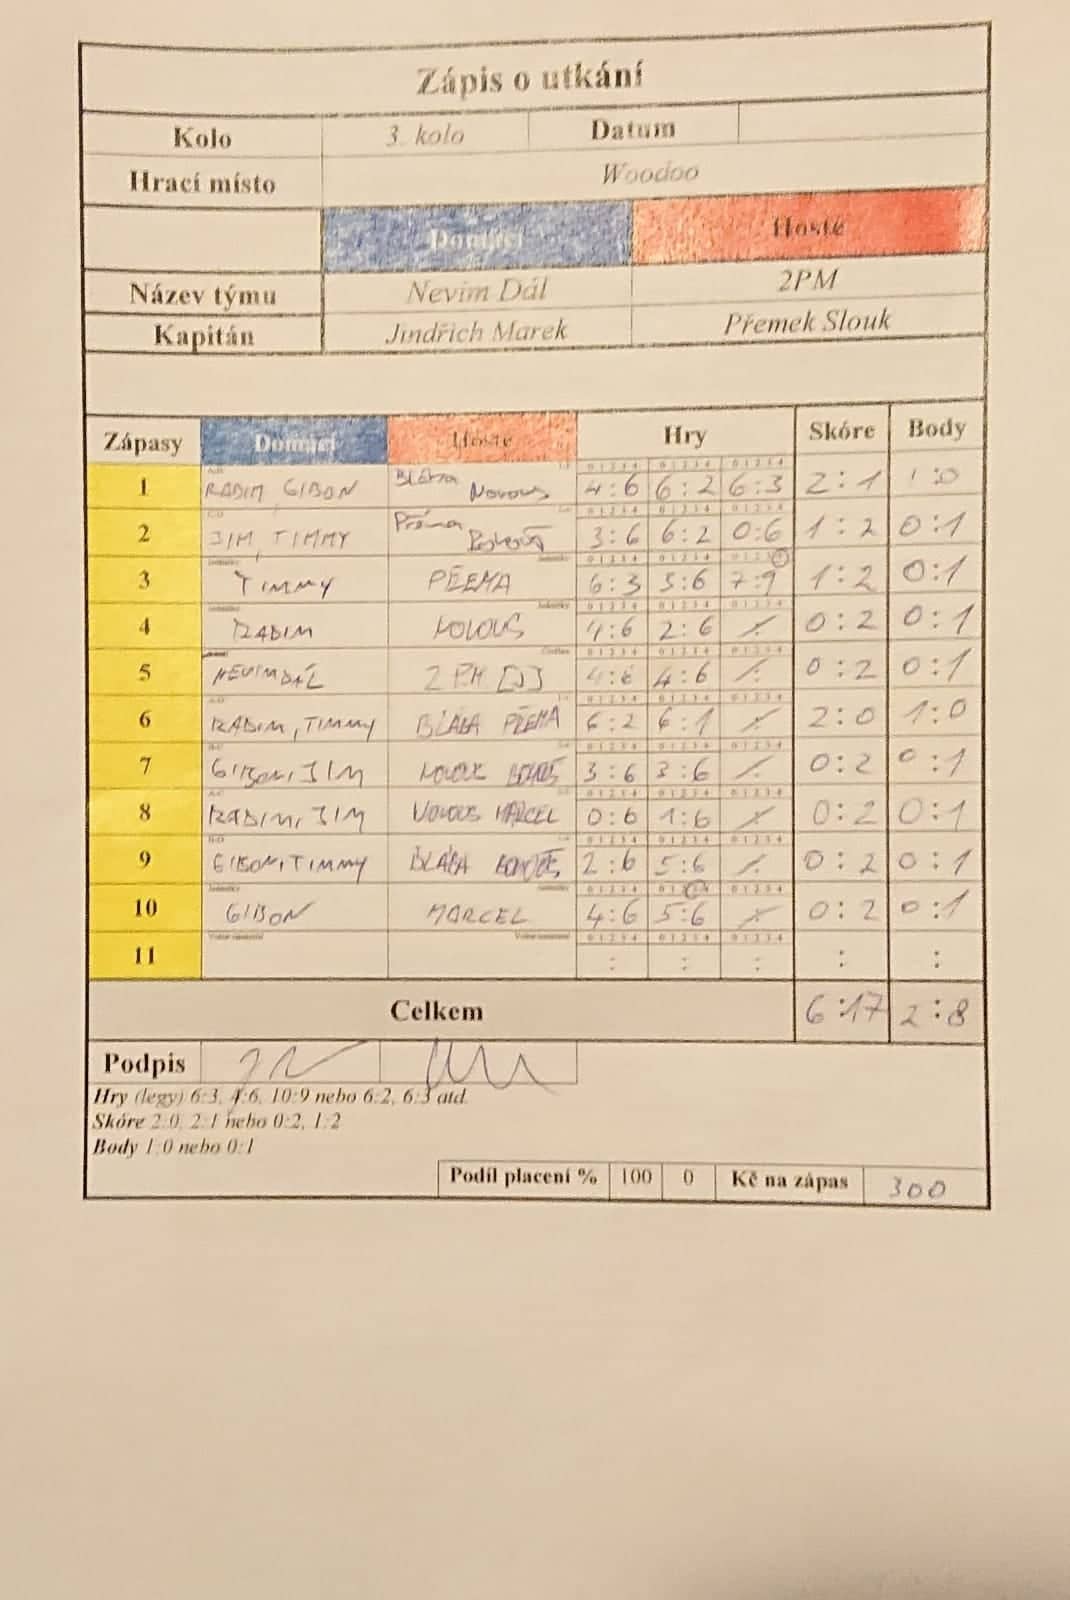 Zápis o utkání
Kolo 3. kolo Datum
Hrací místo Woodoo
Domácí Hosté
Název týmu Nevím Dál 2PM
Kapitán Jindřich Marek Přemek Slouk
Zápasy Domácí Hosté Hry Skóre Body
1 RADIM GIBON Novous 4:6 6:2 6:3 2:1 1:0
2 JIM, TIMMY 3:6 6:2 0:6 1:2 0:1
3 TIMMY PŘEMA 6:3 5:6 7:9 1:2 0:1
4 RADIM NOVOUS 4:6 2:6 0:2 0:1
5 NEVIM DÁL 2PM [J] 4:6 4:6 0:2 0:1
6 RADIM, TIMMY BLÁBA PŘEMA 6:2 6:1 2:0 1:0
7 GIBON, JIM NOVOUS 3:6 3:6 0:2 0:1
8 RADIM, JIM NOVOUS MARCEL 0:6 1:6 0:2 0:1
9 GIBON, TIMMY BLÁBA 2:6 5:6 0:2 0:1
10 GIBON MARCEL 4:6 5:6 0:2 0:1
11 : : : : :
Celkem 6:17 2:8
Podpis
Hry (legy) 6:3, 4:6, 10:9 nebo 6:2, 6:3 atd.
Skóre 2:0, 2:1 nebo 0:2, 1:2
Body 1:0 nebo 0:1
Podíl placení % 100 0 Kč na zápas 300